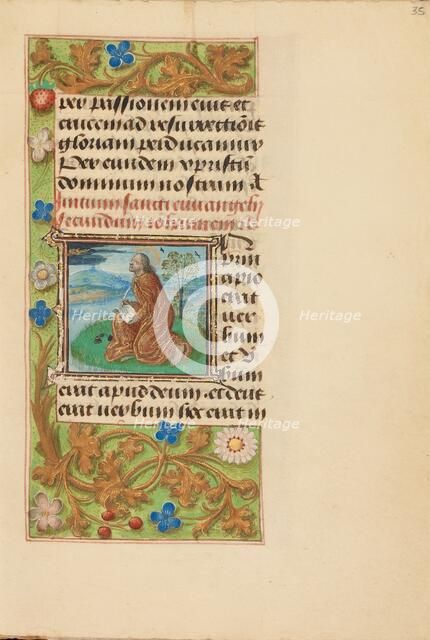 35
per passionem eius et
crucem ad resurrectiōis
gloriam perducamur
Per eundem xpristū
dominum nostrum A
Initium sancti euangelij
secundum Iohannem
prin
cipio
erat
uer
bum
et v
bum
erat apud deum. et deus
erat uerbum hoc erat in
Heritage
Heritage
Heritage
Heritage
Heritage